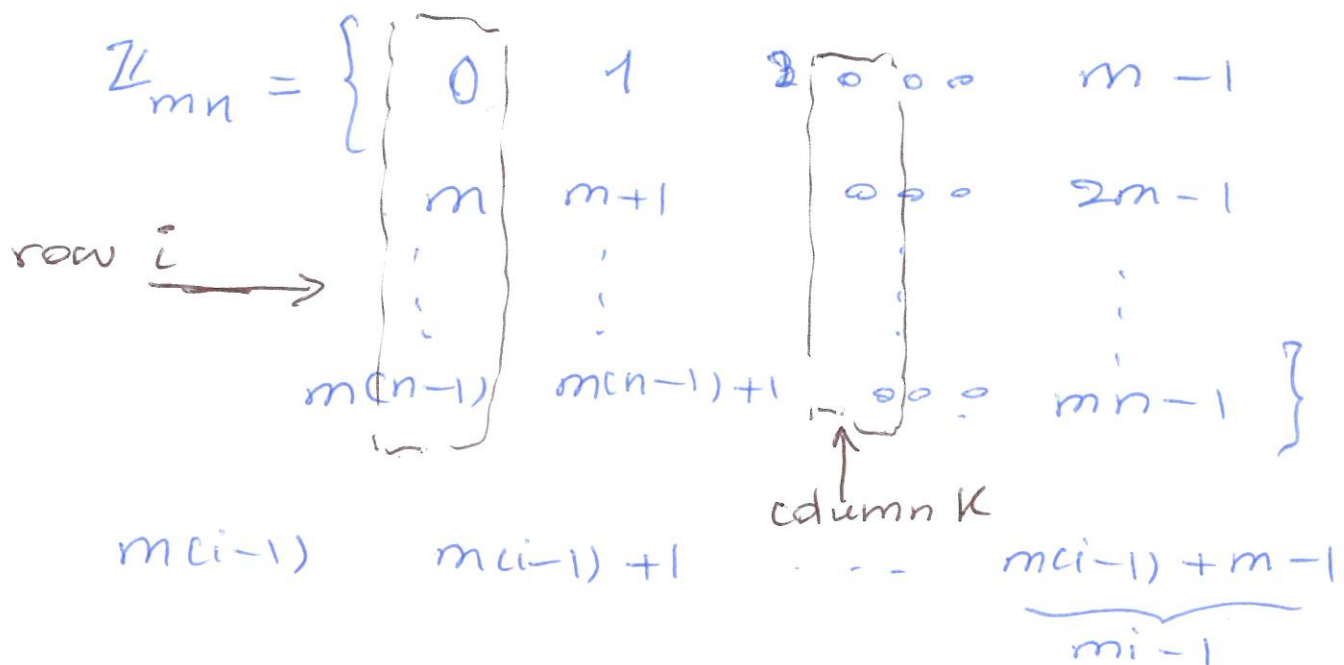 ℤ_{mn} = { 0 1 2 ∘ ∘ ∘ m-1
m m+1 ∘ ∘ ∘ 2m-1
row i →
⋮ ⋮ ⋮ ⋮
m(n-1) m(n-1)+1 ∘ ∘ ∘ mn-1 }
column K
m(i-1) m(i-1)+1 ... m(i-1)+m-1
mi-1